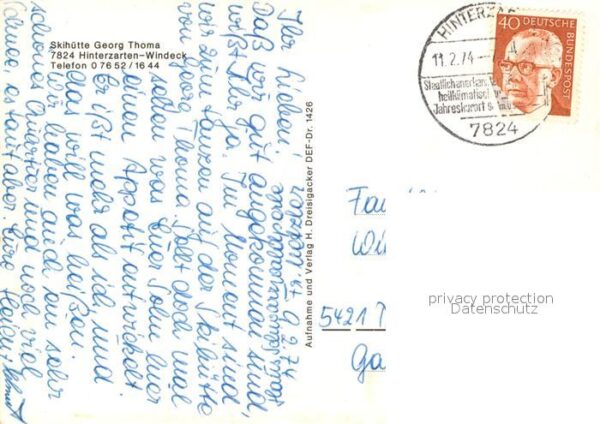 Skihütte Georg Thoma
7824 Hinterzarten-Windeck
Telefon 0 76 52 / 16 44
HINTERZAR
11.2.74
Staatlich anerkan
heilklimatisch
Jahreskurort
7824
40 DEUTSCHE
BUNDESPOST
9.2.74
Ihr Lieben!
Daß wir gut angekommen sind,
wißt Ihr ja. Im Moment sind
wir zum Tanzen auf der Skihütte
von Georg Thoma. Stellt doch mal
vor, was Euer Sohn hier
einen Appetit entwickelt.
Er ißt mehr als ich und
das will was heißen.
Wir haben auch ein sehr
schönes Quartier und noch viel
Eure
Aufnahme und Verlag H. Dreisigacker DEF-Dr. 1426
Fa
Wi
5421
Ga
privacy protection
Datenschutz